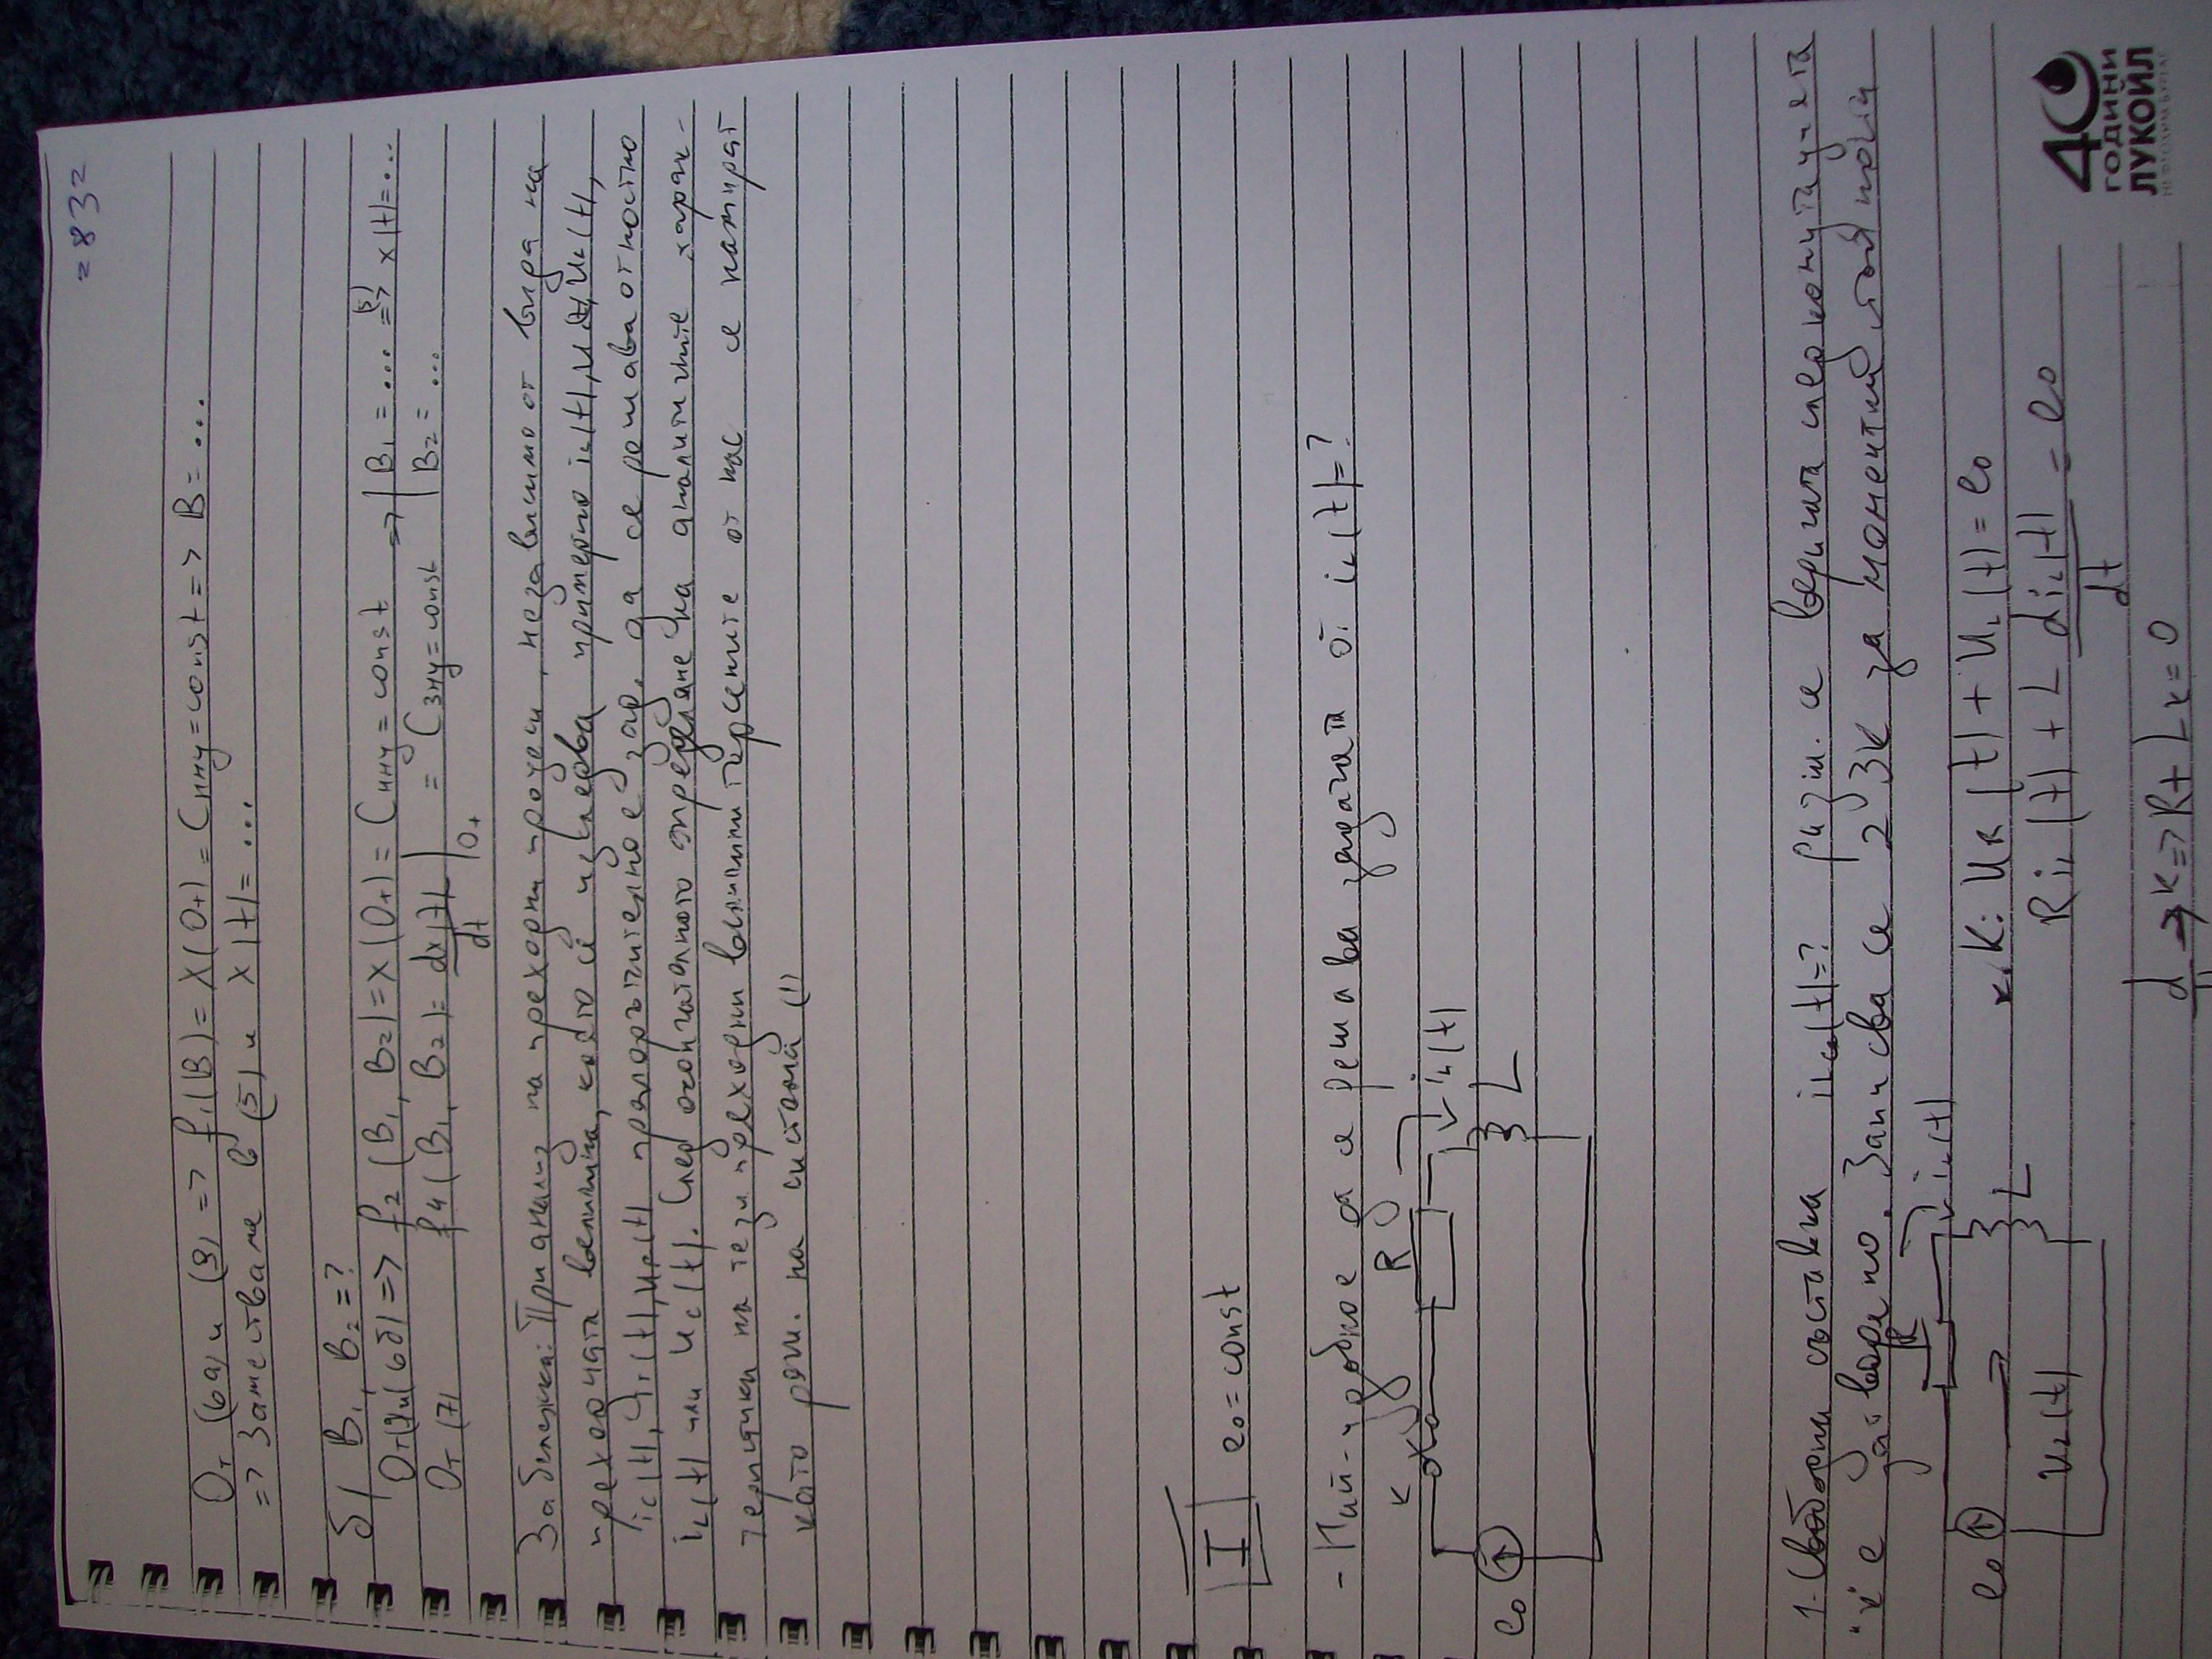 = 832
От (6а) и (9) => f₁(B) = x(0+) = Cнну = const => B = ...
=> Заместваме в (5) и x(t) = ...
б) B₁, B₂ = ?
От (6б) => f₂(B₁, B₂) = x(0+) = Cнну = const => | B₁ = ... => x(t) = ...
От (7) f₄(B₁, B₂) = dx(t)/dt |0+ = Cзну = const | B₂ = ...
Забележка: При анализ на преходни процеси, независимо от вида на
преходната величина, която се изследва примерно iL(t), uL(t),
ic(t), uR(t) препоръчително е зад. да се решава относно
iL(t) или uc(t). След окончателното определяне на аналитичните харак-
теристики на тези преходни величини търсените от нас се намират
като реш. на система (1)
I e₀ = const
- Най-удобно да се решава задачата от iL(t) = ?
K R iL(t)
e₀ L
1 - Свободна съставка iLсв(t) = ? се веригата след комутацията
"K" е затворено. Записва се 2 ЗК за моментни
R iL(t)
e₀ L K: uR(t) + uL(t) = e₀
uL(t) R iL(t) + L diL(t)/dt = e₀
d/dt -> K => R + Lк = 0
40
ГОДИНИ
ЛУКОЙЛ
НЕФТОХИМ БУРГАС